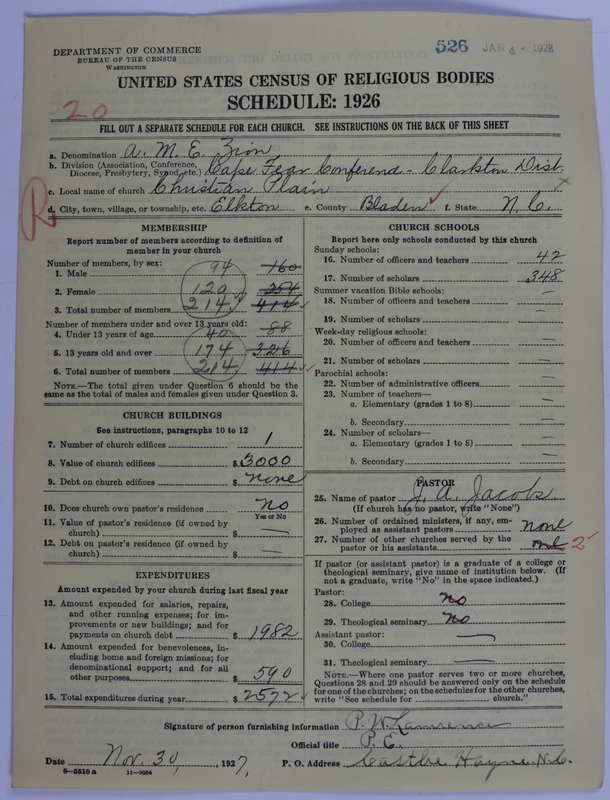 DEPARTMENT OF COMMERCE
BUREAU OF THE CENSUS
WASHINGTON
526 JAN 4 - 1928
UNITED STATES CENSUS OF RELIGIOUS BODIES
SCHEDULE: 1926
20
FILL OUT A SEPARATE SCHEDULE FOR EACH CHURCH. SEE INSTRUCTIONS ON THE BACK OF THIS SHEET
a. Denomination A. M. E. Zion
b. Division (Association, Conference, Diocese, Presbytery, Synod, etc.) Cape Fear Conference - Clarkton Dist.
c. Local name of church Christian Plain
R
d. City, town, village, or township, etc. Elkton e. County Bladen f. State N. C.
MEMBERSHIP
Report number of members according to definition of
member in your church
Number of members, by sex:
1. Male 94 160
2. Female 120 254
3. Total number of members 214 414
Number of members under and over 13 years old:
4. Under 13 years of age 40 88
5. 13 years old and over 174 326
6. Total number of members 214 414
NOTE.—The total given under Question 6 should be the
same as the total of males and females given under Question 3.
CHURCH BUILDINGS
See instructions, paragraphs 10 to 12
7. Number of church edifices 1
8. Value of church edifices $ 3000
9. Debt on church edifices $ none
10. Does church own pastor's residence no
Yes or No
11. Value of pastor's residence (if owned by
church) $ —
12. Debt on pastor's residence (if owned by
church) $ —
EXPENDITURES
Amount expended by your church during last fiscal year
13. Amount expended for salaries, repairs,
and other running expenses; for im-
provements or new buildings; and for
payments on church debt $ 1982
14. Amount expended for benevolences, in-
cluding home and foreign missions; for
denominational support; and for all
other purposes $ 590
15. Total expenditures during year $ 2572
CHURCH SCHOOLS
Report here only schools conducted by this church
Sunday schools:
16. Number of officers and teachers 42
17. Number of scholars 348
Summer vacation Bible schools:
18. Number of officers and teachers —
19. Number of scholars —
Week-day religious schools:
20. Number of officers and teachers —
21. Number of scholars —
Parochial schools:
22. Number of administrative officers —
23. Number of teachers—
a. Elementary (grades 1 to 8) —
b. Secondary —
24. Number of scholars—
a. Elementary (grades 1 to 8) —
b. Secondary —
PASTOR
25. Name of pastor J. A. Jacobs
(If church has no pastor, write "None")
26. Number of ordained ministers, if any, em-
ployed as assistant pastors none
27. Number of other churches served by the
pastor or his assistants one 2
If pastor (or assistant pastor) is a graduate of a college or
theological seminary, give name of institution below. (If
not a graduate, write "No" in the space indicated.)
Pastor:
28. College no
29. Theological seminary no
Assistant pastor:
30. College —
31. Theological seminary —
NOTE.—Where one pastor serves two or more churches,
Questions 28 and 29 should be answered only on the schedule
for one of the churches; on the schedules for the other churches,
write "See schedule for church."
Signature of person furnishing information P. W. Lawrence
Official title P. E.
Date Nov. 30, 1927, P. O. Address Castle Hayne N. C.
8-5518 a 11-9034